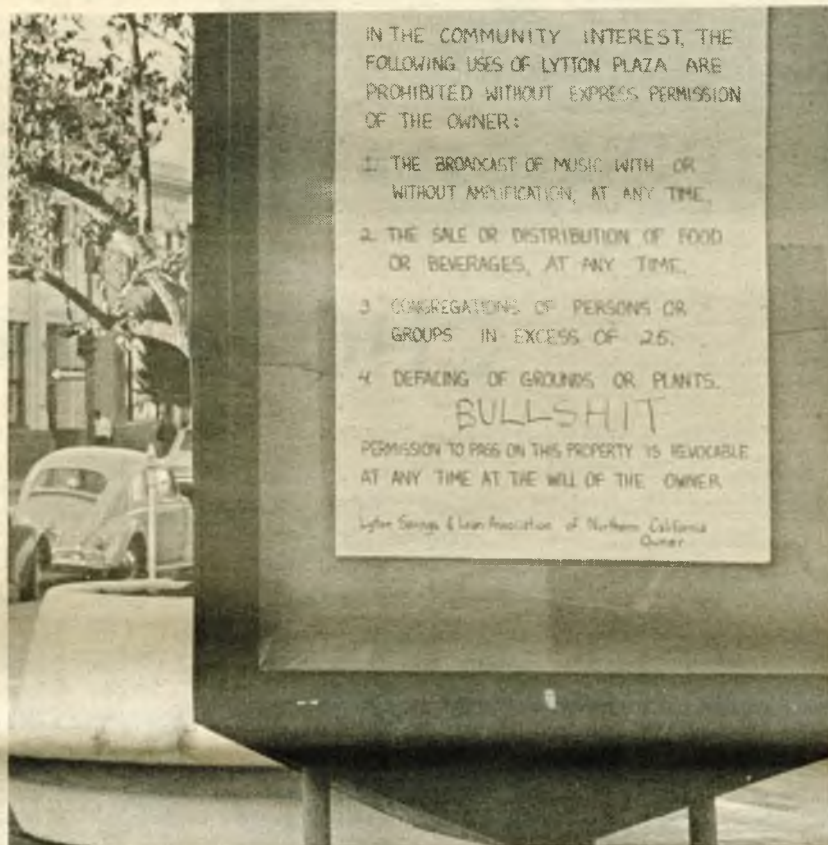 IN THE COMMUNITY INTEREST, THE
FOLLOWING USES OF LYTTON PLAZA ARE
PROHIBITED WITHOUT EXPRESS PERMISSION
OF THE OWNER:
1. THE BROADCAST OF MUSIC WITH OR
WITHOUT AMPLIFICATION, AT ANY TIME.
2. THE SALE OR DISTRIBUTION OF FOOD
OR BEVERAGES, AT ANY TIME.
3 CONGREGATIONS OF PERSONS OR
GROUPS IN EXCESS OF 25.
4. DEFACING OF GROUNDS OR PLANTS.
BULLSHIT
PERMISSION TO PASS ON THIS PROPERTY IS REVOCABLE
AT ANY TIME AT THE WILL OF THE OWNER
Lytton Savings & Loan Association of Northern California
Owner